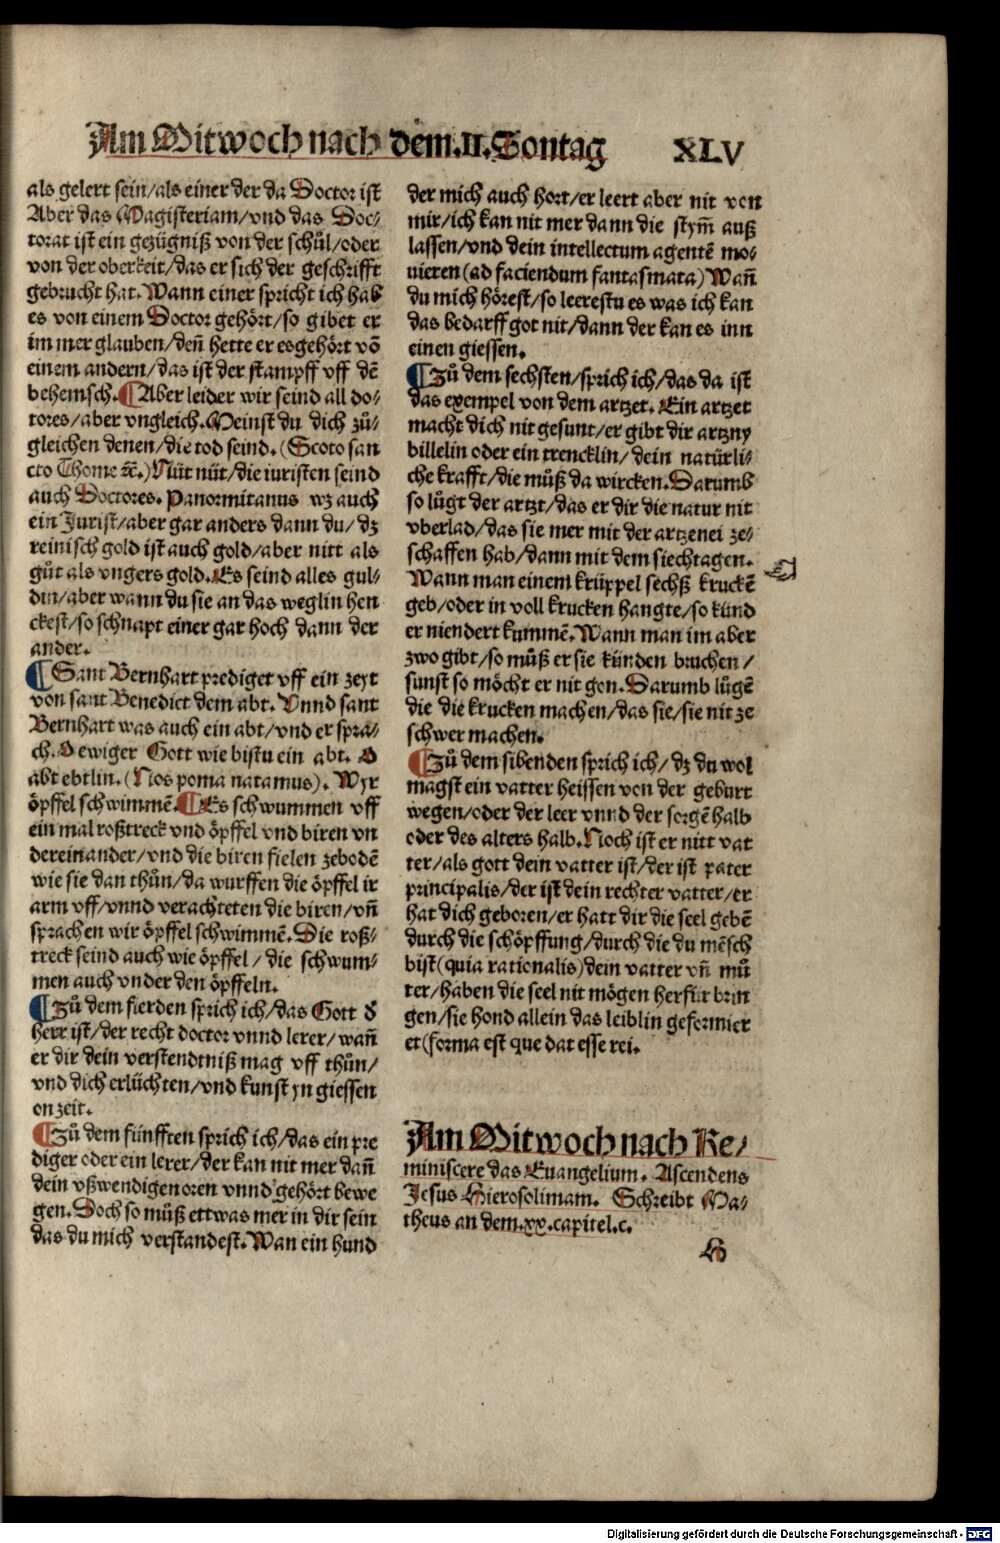 Am Mitwoch nach dem .II. Sontag XLV
als gelert sein/als einer der da Doctor ist
Aber das Magisterium/vnd das Doc⸗
torat ist ein gezügniß von der schůl/oder
von der oberkeit/das er sich der geschrifft
gebrucht hat. Wann einer spricht ich hab
es von einem Doctor gehört/so gibet er
im mer glauben/deñ hette er es gehört võ
einem andern/das ist der stampff vff dẽ
behemsch. ¶Aber leider wir seind all do⸗
tores/aber vngleich. Meinst du dich zů⸗
gleichen denen/die tod seind. (Scoto san
cto Thome ꝛc̃.) Nüt nüt/die iuristen seind
auch Doctores. Panormitanus wz auch
ein Jurist/aber gar anders dann du/dz
reinisch gold ist auch gold/aber nitt als
gůt als vngers gold. Es seind alles gul⸗
din/aber wann du sie an das weglin hen
ckest/so schnapt einer gar hoch dann der
ander.
¶Sant Bernhart prediget vff ein zeyt
von sant Benedict dem abt. Vnnd sant
Bernhart was auch ein abt/vnd er spra⸗
ch. O ewiger Gott wie bistu ein abt. O
abt ebtlin. (Nos poma natamus). Wyr
öpffel schwimmẽ. ¶Es schwummen vff
ein mal roßtreck vnd öpffel vnd biren vn
dereinander/vnd die biren fielen zebodẽ
wie sie dan thůn/da wurffen die öpffel ir
arm vff/vnnd verachteten die biren/vñ
sprachen wir öpffel schwimmẽ. Die roß⸗
treck seind auch wie öpffel/die schwum⸗
men auch vnder den öpffeln.
¶Zů dem fierden sprich ich/das Gott d̕
herr ist/der recht doctor vnnd lerer/wañ
er dir dein verstendtniß mag vff thůn/
vnd dich erlüchten/vnd kunst yn giessen
on zeit.
¶Zů dem fünfften sprich ich/das ein pre
diger oder ein lerer/der kan nit mer dañ
dein vßwendigen oren vnnd gehört bewe
gen. Doch so můß ettwas mer in dir sein
das du mich verstandest. Wan ein hund
der mich auch hort/er leert aber nit von
mir/ich kan nit mer dann die stym̃ auß
lassen/vnd dein intellectum agentẽ mo⸗
uieren (ad faciendum fantasmata) Wañ
du mich hörest/so leerestu es was ich kan
das bedarff got nit/dann der kan es inn
einen giessen.
¶Zů dem sechsten/sprich ich/das da ist
das exempel von dem artzet. Ein artzet
macht dich nit gesunt/er gibt dir artzny
billelin oder ein trencklin/dein natürli⸗
che krafft/die můß da wircken. Darumb
so lůgt der artzt/das er dir die natur nit
vberlad/das sie mer mit der artzenei ze⸗
schaffen hab/dann mit dem siechtagen.
Wann man einem krüppel sechß kruckẽ
geb/oder in voll krucken hangte/so künd
er niendert kummẽ. Wann man im aber
zwo gibt/so můß er sie künden bruchen/
sunst so möcht er nit gon. Darumb lůgẽ
die die krucken machen/das sie/sie nit ze
schwer machen.
¶Zů dem sibenden sprich ich/dz du wol
magst ein vatter heissen von der geburt
wegen/oder der leer vnnd der sorgẽ halb
oder des alters halb. Noch ist er nitt vat
ter/als gott dein vatter ist/der ist pater
principalis/der ist dein rechter vatter/er
hat dich geboren/er hatt dir die seel gebẽ
durch die schöpffung/durch die du mẽsch
bist (quia rationalis) dein vatter vñ mů
ter/haben die seel nit mögen herfür brin
gen/sie hond allein das leiblin geformier
et (forma est que dat esse rei.
Am Mitwoch nach Re⸗
miniscere das Euangelium. Ascendens
Jesus Hierosolimam. Schreibt Ma⸗
theus an dem .xx. capitel. c.
H
Digitalisierung gefördert durch die Deutsche Forschungsgemeinschaft - DFG